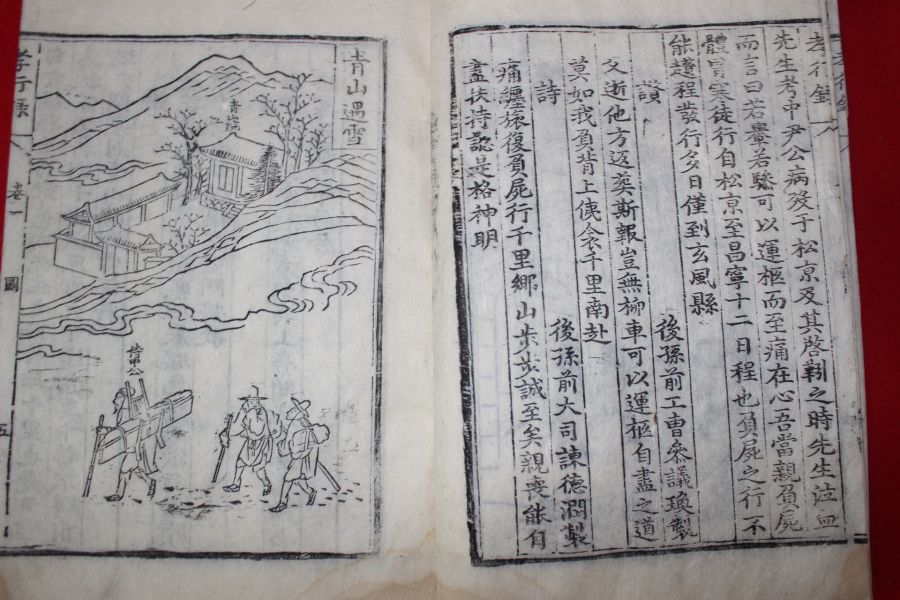 孝行錄
先生考中尹公病歿于松京及其啓靷之時先生泣血
而言曰若轝若驂可以運柩而至痛在心吾當親負屍
體冒寒徒行自松京至昌寧十二日程也負屍之行不
能趲程發行多日僅到玄風縣
讚 後孫前工曹參議瑍製
父逝他方返葬斯報豈無柳車可以運柩自盡之道
莫如我負背上儀衾千里南赴
詩 後孫前大司諫德潤製
痛纏旅復負屍行千里鄉山步步誠至矣親喪能自
盡扶持認是格神明
青山遇雪
青
公
孝行錄 卷一 圖 五